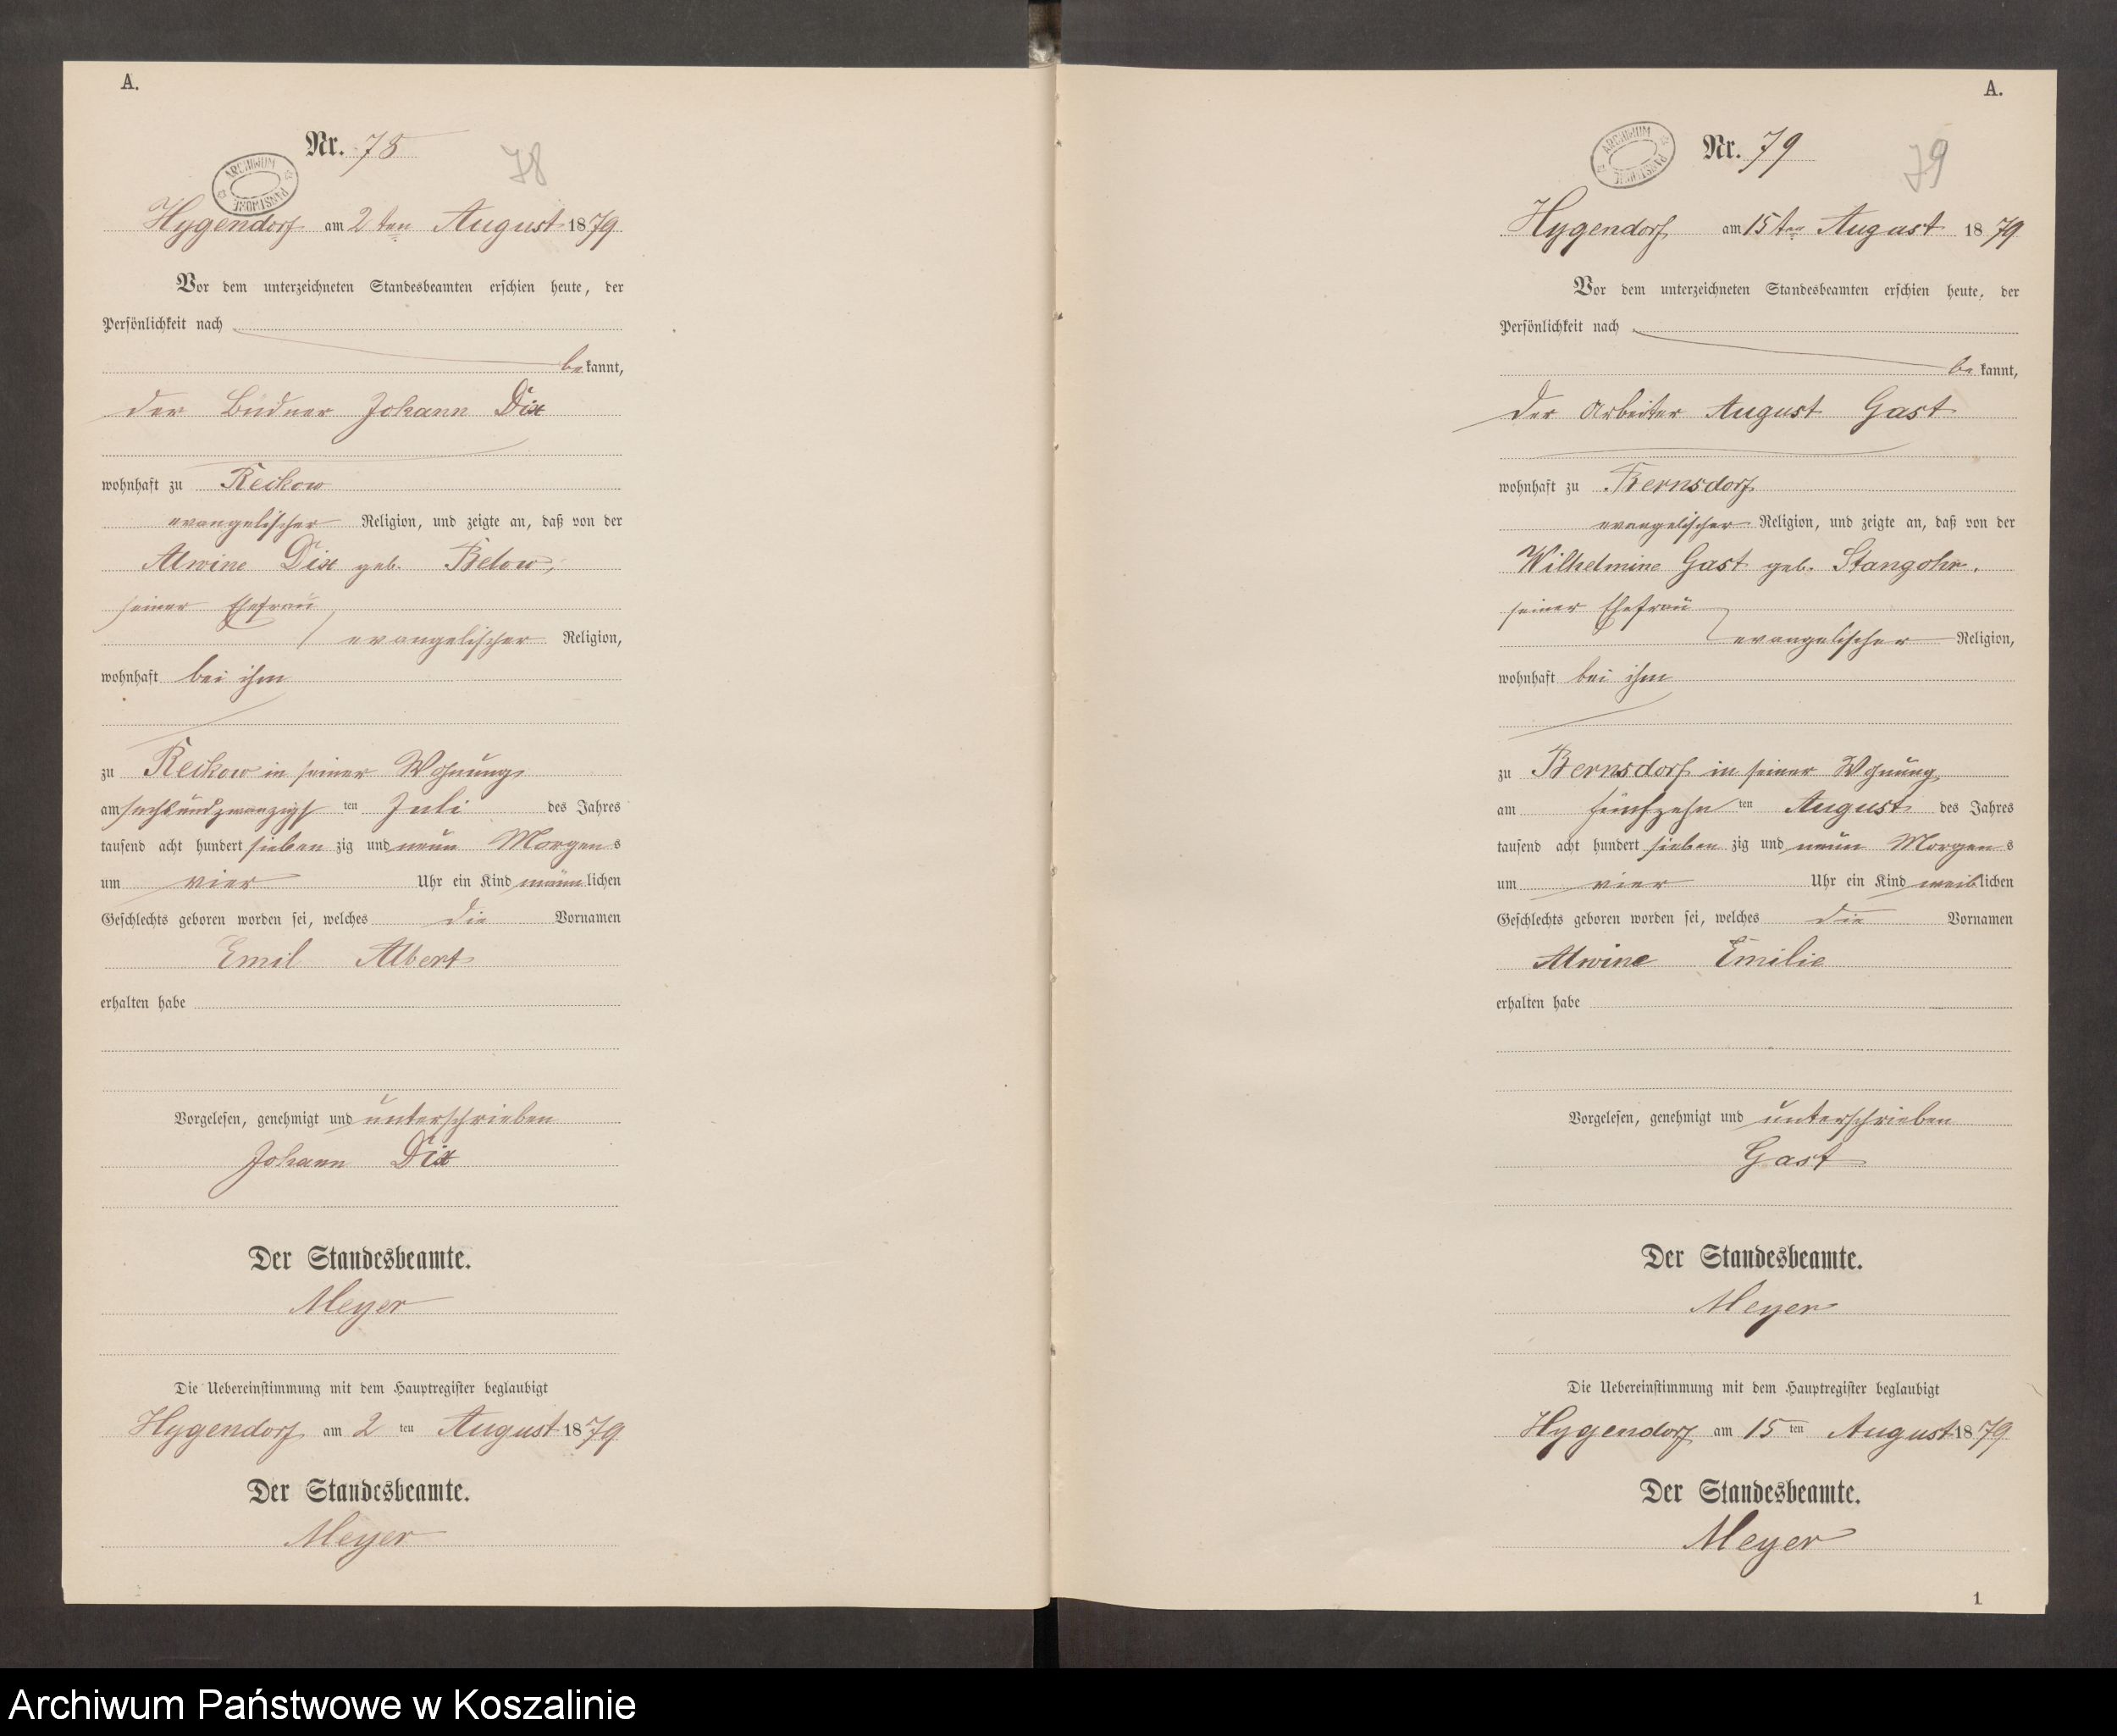 A.
Nr. 78
78
ARCHIWUM PAŃSTWOWE
Hygendorf am 2ten August 1879
Vor dem unterzeichneten Standesbeamten erschien heute, der
Persönlichkeit nach
bekannt,
der Büdner Johann Dix
wohnhaft zu Reckow
evangelischer Religion, und zeigte an, daß von der
Alwine Dix geb. Below,
seiner Ehefrau
evangelischer Religion,
wohnhaft bei ihm
zu Reckow in seiner Wohnung
am sechsundzwanzigsten Juli des Jahres
tausend acht hundert siebenzig und neun Morgens
um vier Uhr ein Kind männlichen
Geschlechts geboren worden sei, welches die Vornamen
Emil Albert
erhalten habe
Vorgelesen, genehmigt und unterschrieben
Johann Dix
Der Standesbeamte.
Meyer
Die Uebereinstimmung mit dem Hauptregister beglaubigt
Hygendorf am 2ten August 1879
Der Standesbeamte.
Meyer
A.
Nr. 79
79
ARCHIWUM PAŃSTWOWE
Hygendorf am 15ten August 1879
Vor dem unterzeichneten Standesbeamten erschien heute, der
Persönlichkeit nach
bekannt,
der Arbeiter August Gast
wohnhaft zu Bernsdorf
evangelischer Religion, und zeigte an, daß von der
Wilhelmine Gast geb. Stangohr.
seiner Ehefrau
evangelischer Religion,
wohnhaft bei ihm
zu Bernsdorf in seiner Wohnung
am fünfzehnten August des Jahres
tausend acht hundert siebenzig und neun Morgens
um vier Uhr ein Kind weiblichen
Geschlechts geboren worden sei, welches die Vornamen
Alwine Emilie
erhalten habe
Vorgelesen, genehmigt und unterschrieben
Gast
Der Standesbeamte.
Meyer
Die Uebereinstimmung mit dem Hauptregister beglaubigt
Hygendorf am 15ten August 1879
Der Standesbeamte.
Meyer
1
Archiwum Państwowe w Koszalinie